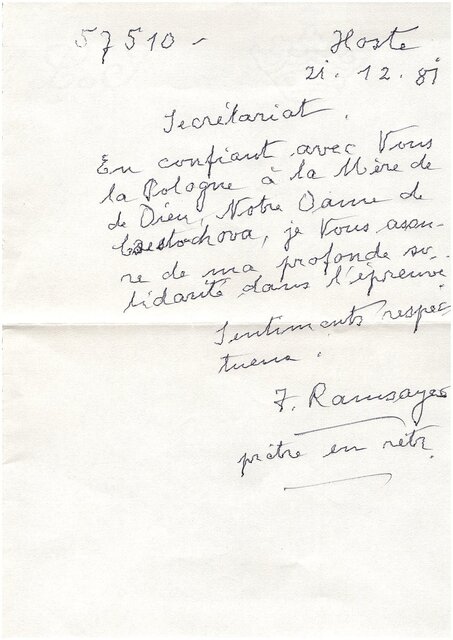 57510 - Hoste
21.12.81
Secrétariat.
En confiant avec Vous
la Pologne à la Mère de
de Dieu, Notre Dame de
Czestochova, je Vous assu-
re de ma profonde so-
lidarité dans l'épreuve
Sentiments respec
tueux.
F. Ramsayer
prêtre en retr.